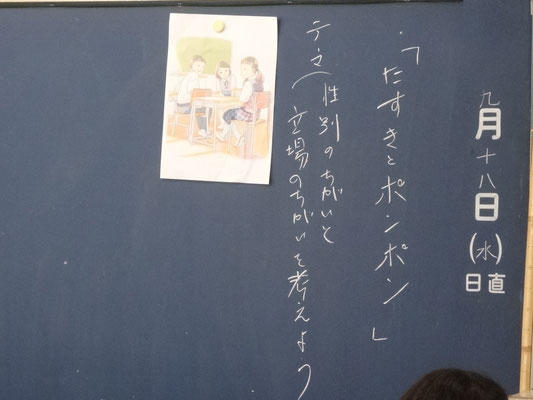 九月十八日(水)
日直
・「たすきとポンポン」
テーマ(性別のちがいと
立場のちがいを考えよう